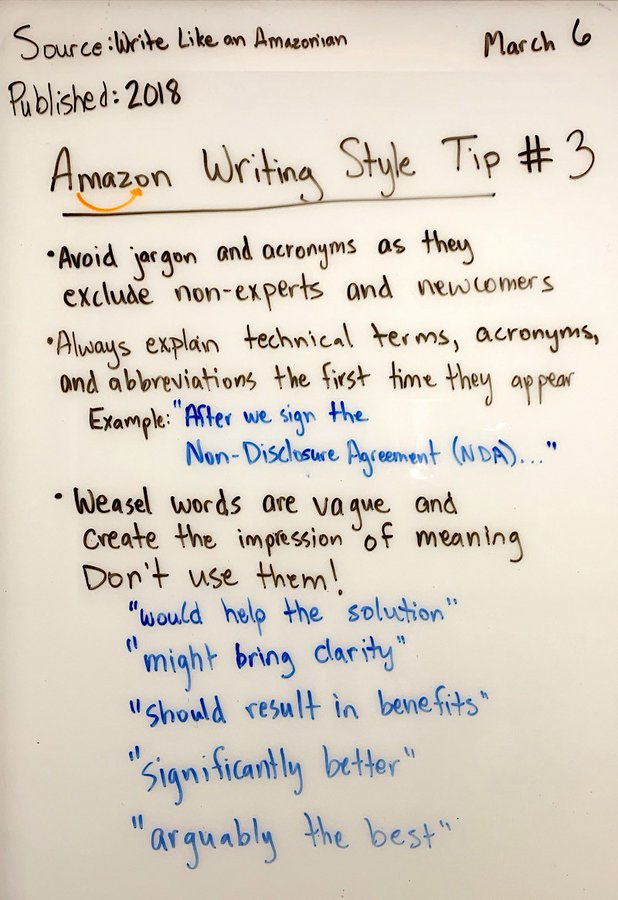 Source: Write Like an Amazonian
March 6
Published: 2018
Amazon Writing Style Tip #3
• Avoid jargon and acronyms as they
exclude non-experts and newcomers
• Always explain technical terms, acronyms,
and abbreviations the first time they appear
Example: "After we sign the
Non-Disclosure Agreement (NDA)..."
• Weasel words are vague and
create the impression of meaning
Don't use them!
"would help the solution"
"might bring clarity"
"should result in benefits"
"significantly better"
"arguably the best"